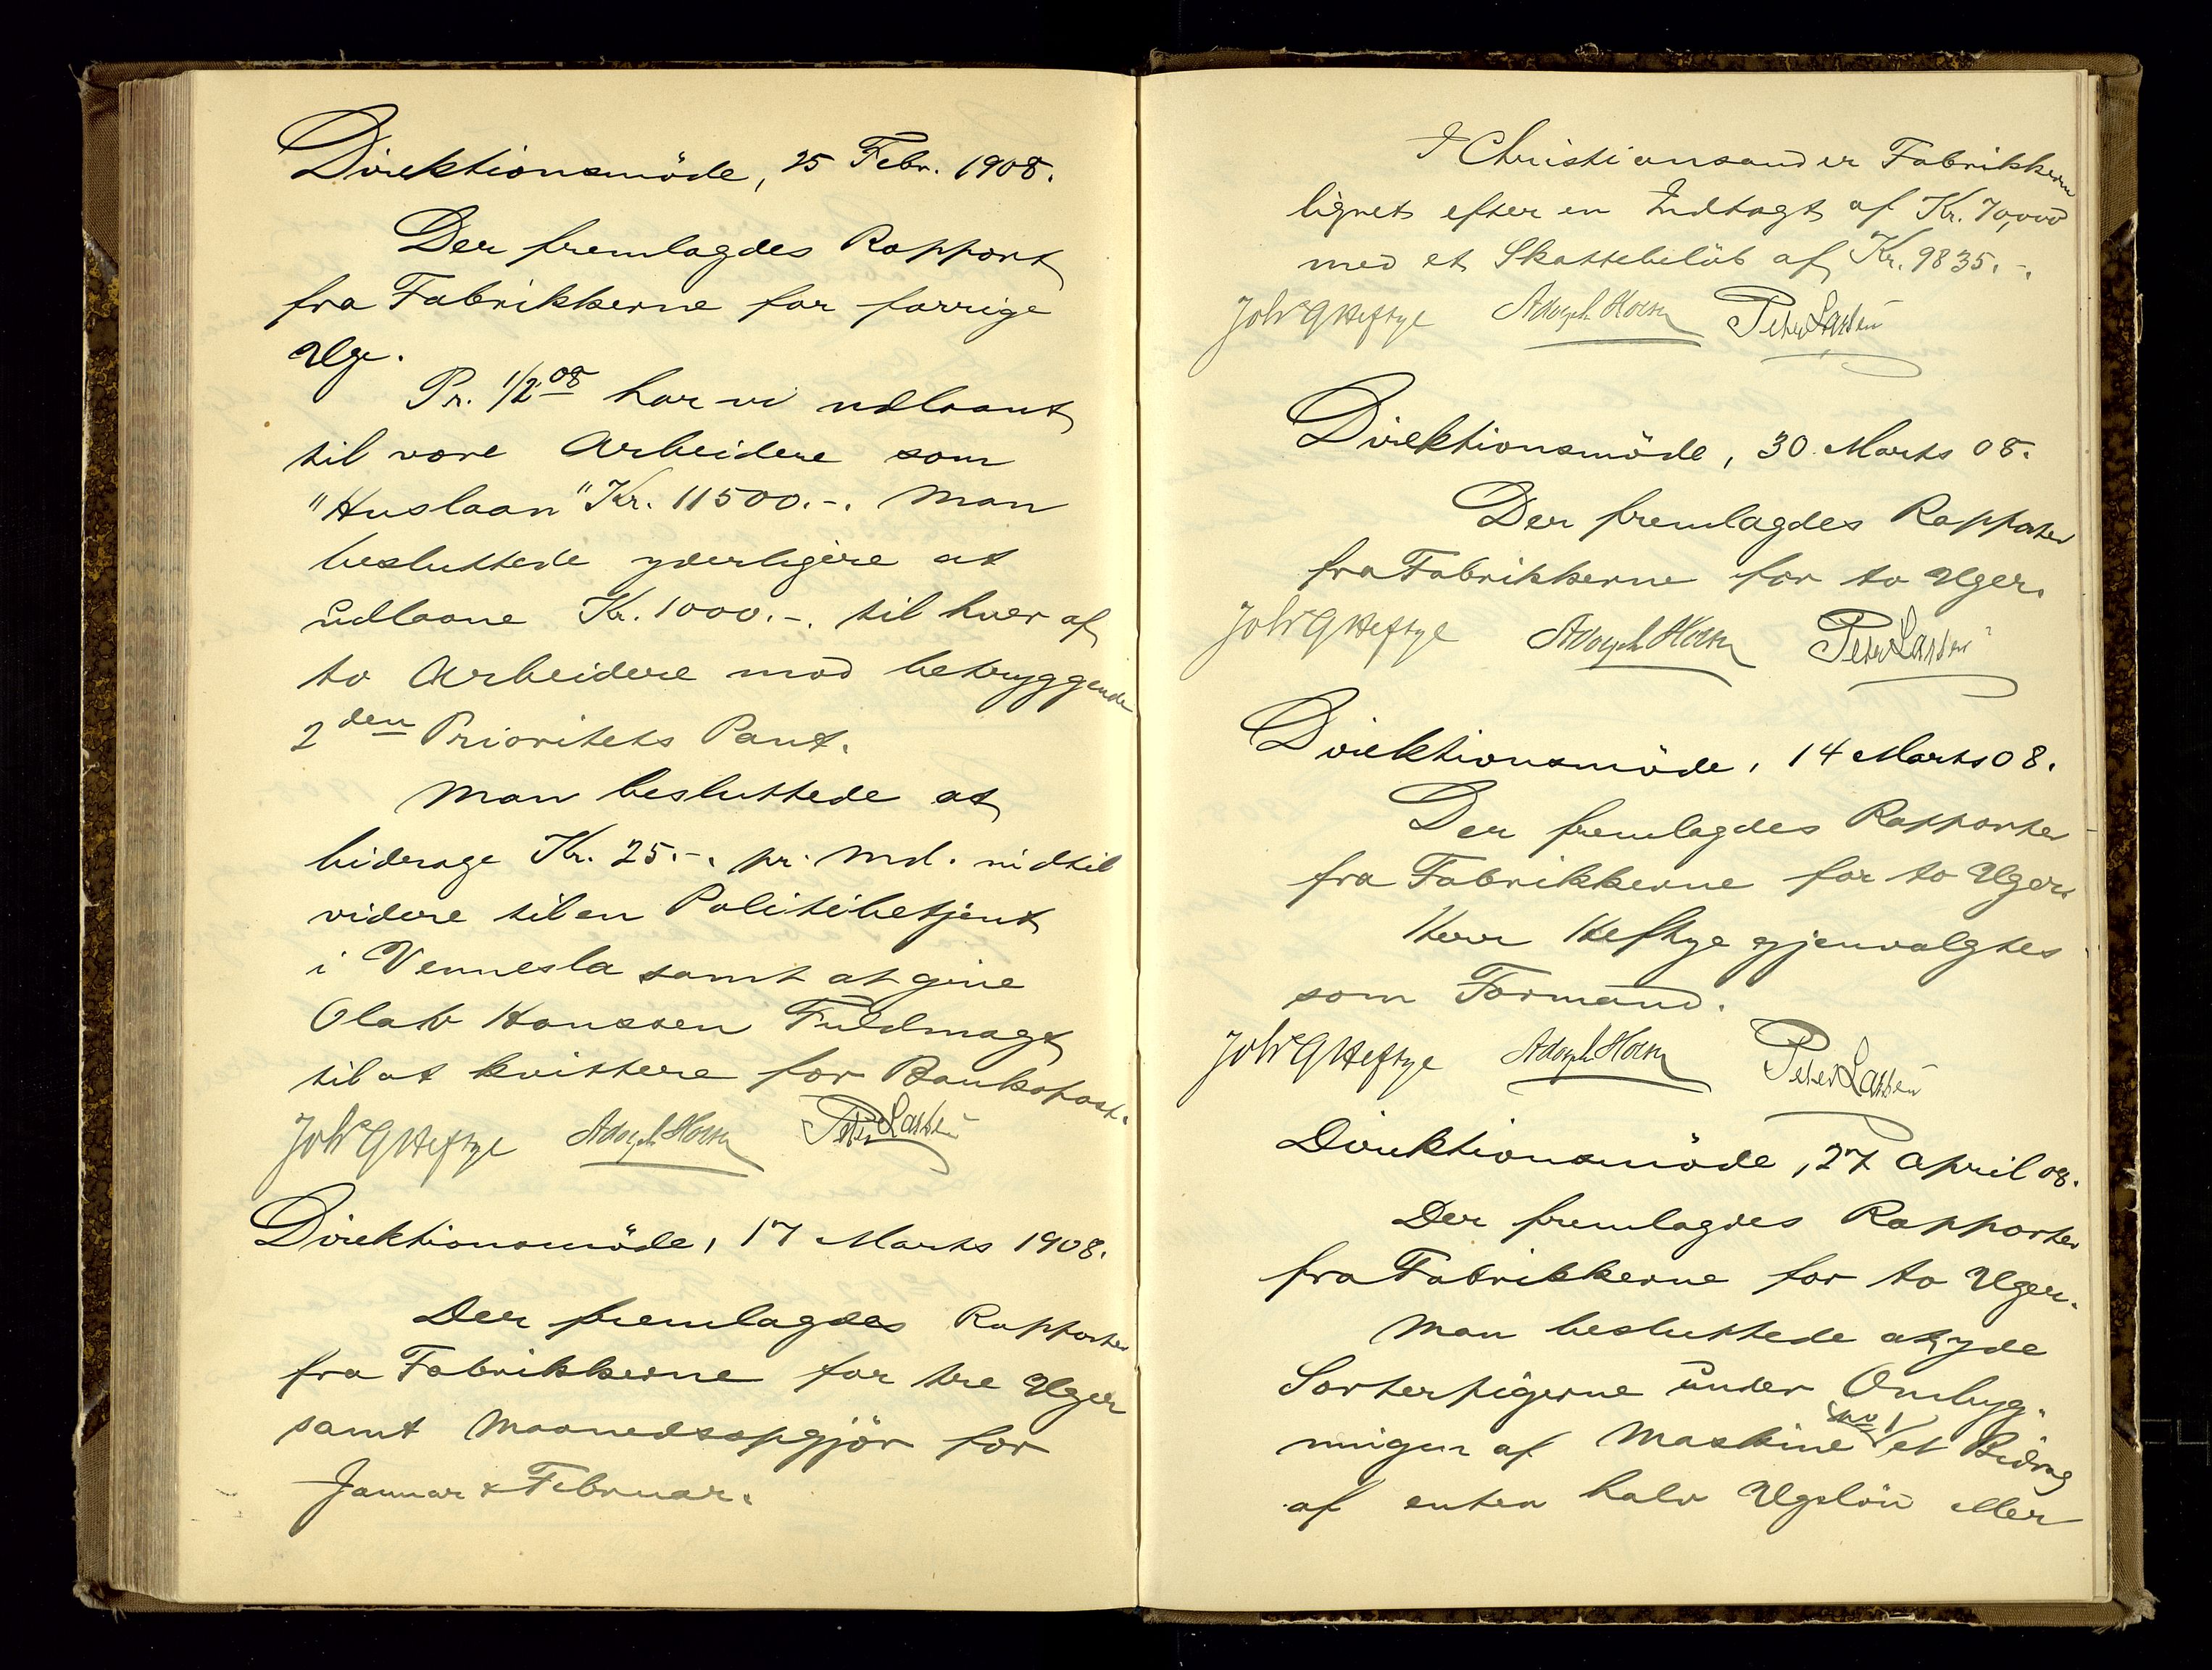 Direktionsmöde, 25 Febr. 1908.
Der fremlagdes Rapport
fra Fabrikkerne for forrige
Uge.
Pr. 1/2 08 har vi udlaant
til vore Arbeidere som
"Huslaan" Kr. 11500.-. Man
besluttede yderligere at
udlaane Kr. 1000.-. til hver af
to Arbeidere mod betryggende
2den Prioritets Pant.
Man besluttede at
bidrage Kr. 25.-. pr. Md. indtil
videre til en Politibetjent
i Vennesla samt at give
Olab Hanssen Fuldmagt
til at kvittere for Bankopost.
Johs G Heftye Adolph Hoem Peter Larsen
Direktionsmöde, 17 Marts 1908.
Der fremlagdes Rapporter
fra Fabrikkerne for tre Uger
samt Maanedsopgjör for
Januar & Februar.
I Christiansand er Fabrikkerne
lignet efter en Indtægt af Kr. 70,000
med et Skattebelöb af Kr. 9835.-.
Johs G Heftye Adolph Hoem Peter Larsen
Direktionsmöde, 30 Marts 08.
Der fremlagdes Rapporter
fra Fabrikkerne for to Uger.
Johs G Heftye Adolph Hoem Peter Larsen
Direktionsmöde, 14 Marts 08.
Der fremlagdes Rapporter
fra Fabrikkerne for to Uger.
Herr Heftye gjenvalgtes
som Formand.
Johs G Heftye Adolph Hoem Peter Larsen
Direktionsmöde, 27 April 08.
Der fremlagdes Rapporter
fra Fabrikkerne for to Uger.
Man besluttede at yde
Sorterpigerne under Ombyg-
ningen af Maskine No 1 et Bidrag
af enten halv Ugelön eller